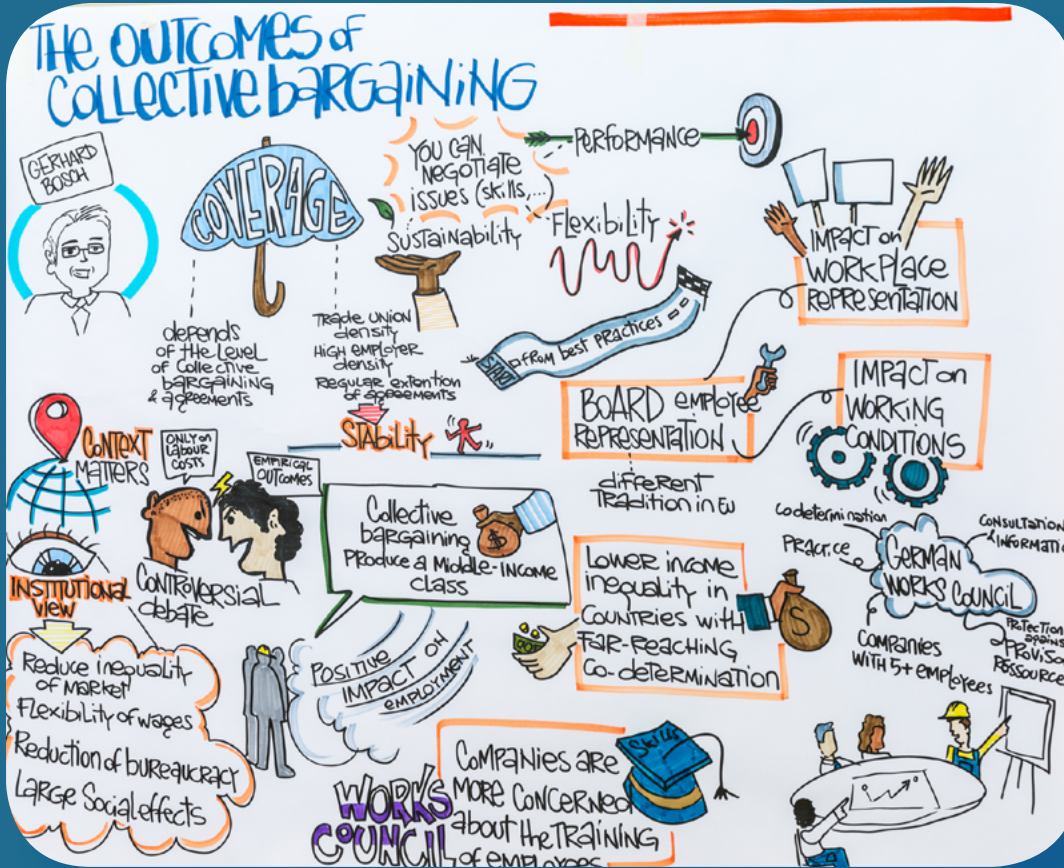 THE OUTCOMES of
COLLECTIVE BARGAINING
GERHARD
BOSCH
COVERAGE
depends
of the Level
of Collective
BARGAINING
& agreements
TRADE UNION
density
HIGH EMPLOYER
density
REGULAR extention
of agreements
STABILITY
YOU CAN
NEGOTIATE
issues (skills,...)
SUSTAINABILITY
PERFORMANCE
FLEXIBILITY
START
FROM best PRACTICES
IMPACT on
WORKPLACE
REPRESENTATION
BOARD employee
REPRESENTATION
different
Tradition in EU
IMPACT on
WORKING
CONDITIONS
CONTEXT
MATTERS
ONLY on
LABOUR
COSTS
EMPIRICAL
OUTCOMES
CONTROVERSIAL
debate
INSTITUTIONAL
view
Reduce inequality
of MARKET
Flexibility of wages
Reduction of bureaucracy
Large Social effects
Collective
bargaining
PRODUCE a MIDDLE-INCOME
CLASS
$
POSITIVE
IMPACT ON
EMPLOYMENT
Lower income
inequality in
Countries with
FAR-REACHING
Co-determination
$
GERMAN
WORKS COUNCIL
Codetermination
PRACTICE
CONSULTATION
COMPANIES
WITH 5+ employees
WORKS
COUNCIL
COMPANIES are
MORE CONCERNED
about the TRAINING
of employees
Skills